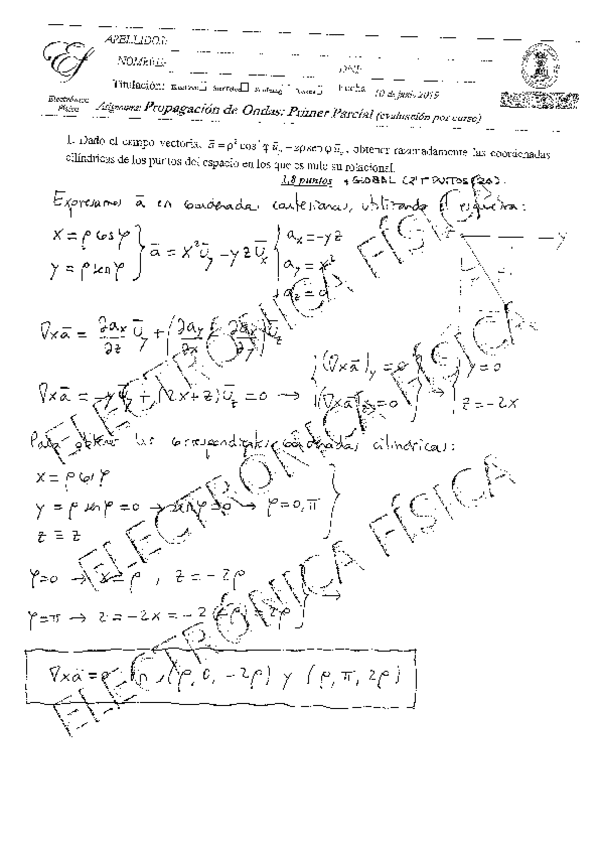 APELLIDOS:
NOMBRE: DNI:
Titulación: Fecha 10 de junio 2019
Electrónica Física Asignatura: Propagación de Ondas: Primer Parcial (evaluación por curso)
1. Dado el campo vectorial ā = ρ² cos² φ ū_y − zρ sen φ ū_x, obtener razonadamente las coordenadas
cilíndricas de los puntos del espacio en los que es nulo su rotacional.
1,8 puntos + GLOBAL
Expresamos ā en coordenadas cartesianas, utilizando el esquema:
x = ρ cos φ
y = ρ sen φ } ā = x² ū_y − yz ū_x { a_x = −yz
a_y = x²
a_z = 0
y
∇xā = ∂a_x/∂z ū_y + (∂a_y/∂x − ∂a_x/∂y) ū_z
∇xā = −y ū_y + (2x+z) ū_z = 0 → { (∇xā)_y = 0 → y = 0
(∇xā)_z = 0 → z = −2x
Para obtener las correspondientes coordenadas cilíndricas:
x = ρ cos φ
y = ρ sen φ = 0 → sen φ = 0 → φ = 0, π
z ≡ z
φ=0 → x = ρ, z = −2ρ
φ=π → z = −2x = −2(−ρ) = 2ρ →
∇xā = 0 en (ρ, 0, −2ρ) y (ρ, π, 2ρ)
ELECTRÓNICA FÍSICA
ELECTRÓNICA FÍSICA
ELECTRÓNICA FÍSICA